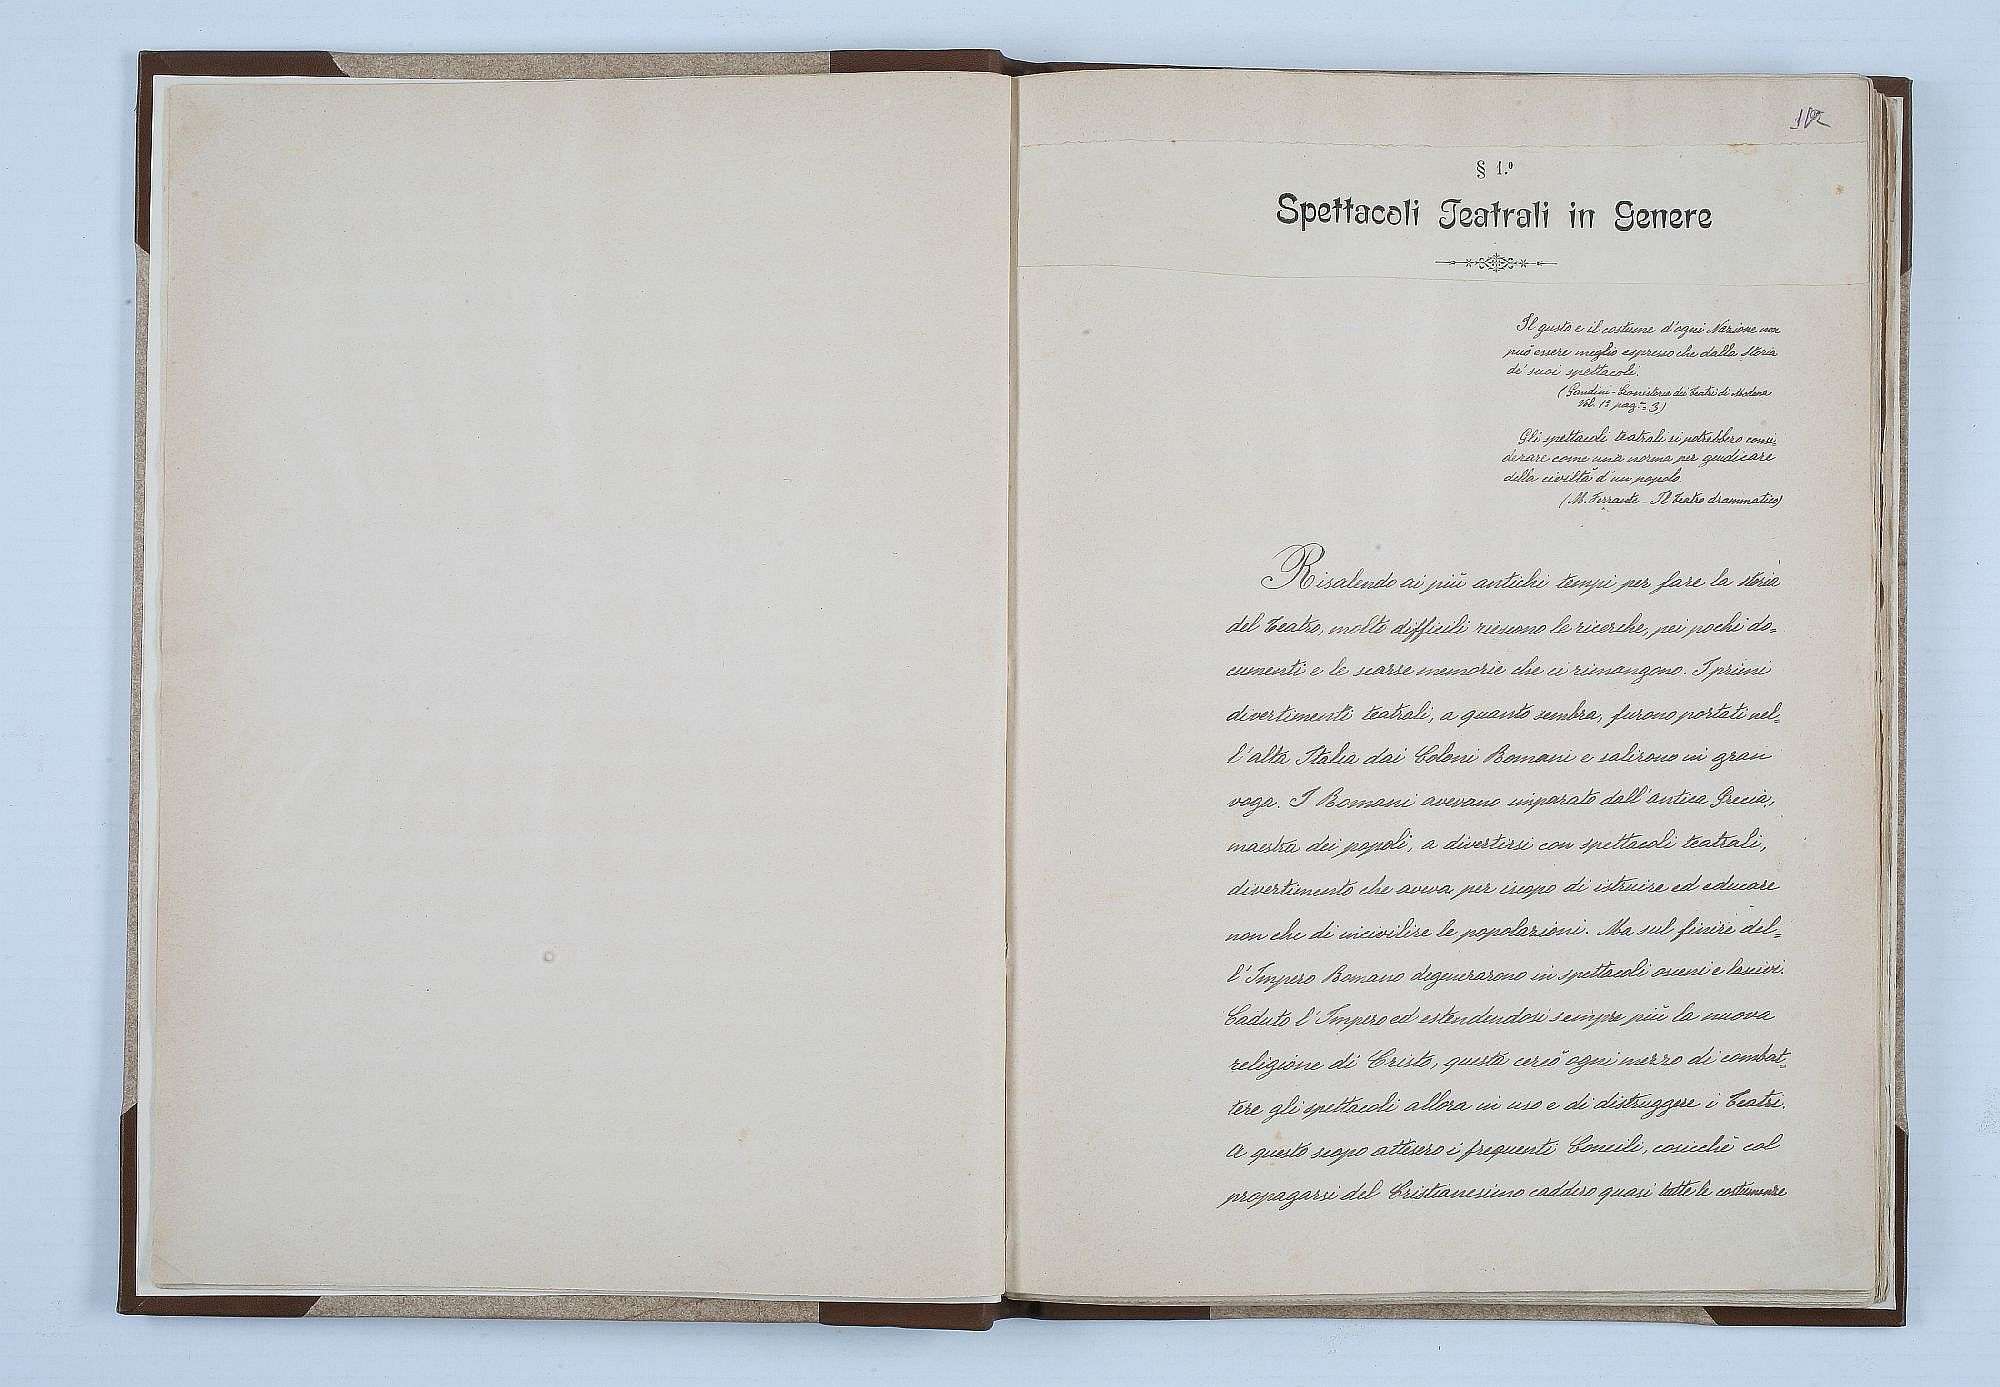 § 1.º
Spettacoli Teatrali in Genere
Il gusto e il costume d'ogni Nazione non
può essere meglio espresso che dalla storia
di' suoi spettacoli.
(Gandini - Cronistoria dei Teatri di Modena
Vol. 1º pag.ª 3)
Gli spettacoli teatrali si potrebbero consi-
derare come una norma per giudicare
della civiltà d'un popolo.
(M. Ferrante - Il Teatro drammatico)
Risalendo ai più antichi tempi per fare la storia
del Teatro, molto difficili riescono le ricerche, pei pochi do=
cumenti e le scarse memorie che ci rimangono. I primi
divertimenti teatrali, a quanto sembra, furono portati nel=
l'alta Italia dai Coloni Romani e salirono in gran
voga. I Romani avevano imparato dall'antica Grecia,
maestra dei popoli, a divertirsi con spettacoli teatrali,
divertimento che aveva per iscopo di istruire ed educare
non che di incivilire le popolazioni. Ma sul finire del=
l'Impero Romano degenerarono in spettacoli osceni e lascivi.
Caduto l'Impero ed estendendosi sempre più la nuova
religione di Cristo, questa cercò ogni mezzo di combat=
tere gli spettacoli allora in uso e di distruggere i Teatri.
A questo scopo attesero i frequenti Concili, cosicchè col
propagarsi del Cristianesimo caddero quasi tutte le costumanze